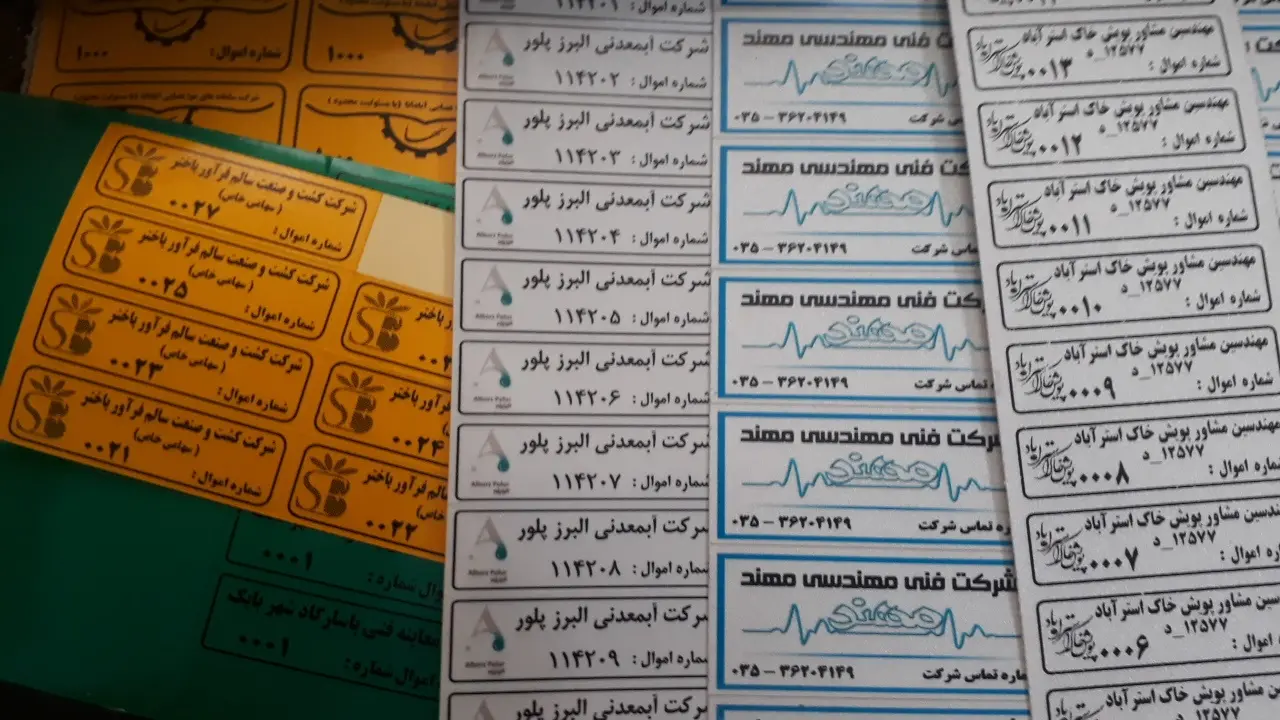 شماره اموال : ۱۰۰۰
۱۰۰۰
شرکت کشت و صنعت سالم فرآور باختر
(سهامی خاص)
شماره اموال :
۰۰۲۷
شرکت کشت و صنعت سالم فرآور باختر
(سهامی خاص)
شماره اموال :
۰۰۲۵
شرکت کشت و صنعت سالم فرآور باختر
(سهامی خاص)
شماره اموال :
۰۰۲۳
شرکت کشت و صنعت سالم فرآور باختر
(سهامی خاص)
شماره اموال :
۰۰۲۱
فرآور باختر
۰۰۲۴
سالم فرآور باختر
۰۰۲۲
۰۰۰۱
وال شماره :
معاینه فنی پاسارگاد شهر بابک
۰۰۰۱
اموال شماره :
شماره اموال : ۱۱۴۲۰۱
شرکت آبمعدنی البرز پلور
شماره اموال : ۱۱۴۲۰۲
شرکت آبمعدنی البرز پلور
شماره اموال : ۱۱۴۲۰۳
شرکت آبمعدنی البرز پلور
شماره اموال : ۱۱۴۲۰۴
شرکت آبمعدنی البرز پلور
شماره اموال : ۱۱۴۲۰۵
شرکت آبمعدنی البرز پلور
شماره اموال : ۱۱۴۲۰۶
شرکت آبمعدنی البرز پلور
شماره اموال : ۱۱۴۲۰۷
شرکت آبمعدنی البرز پلور
شماره اموال : ۱۱۴۲۰۸
شرکت آبمعدنی البرز پلور
شماره اموال : ۱۱۴۲۰۹
شرکت آبمعدنی البرز پلور
شرکت فنی مهندسی مهند
تماس شرکت ۰۳۵ – ۳۶۲۰۴۱۴۹
شرکت فنی مهندسی مهند
تماس شرکت ۰۳۵ – ۳۶۲۰۴۱۴۹
شرکت فنی مهندسی مهند
تماس شرکت ۰۳۵ – ۳۶۲۰۴۱۴۹
شرکت فنی مهندسی مهند
ره تماس شرکت ۰۳۵ – ۳۶۲۰۴۱۴۹
شرکت فنی مهندسی مهند
ماره تماس شرکت ۰۳۵ – ۳۶۲۰۴۱۴۹
مهندسین مشاور پویش خاک استرآباد
۱۲۵۷۷_د
شماره اموال : ۰۰۱۳
مهندسین مشاور پویش خاک استرآباد
۱۲۵۷۷_د
شماره اموال : ۰۰۱۲
مهندسین مشاور پویش خاک استرآباد
۱۲۵۷۷_د
شماره اموال : ۰۰۱۱
مهندسین مشاور پویش خاک استرآباد
۱۲۵۷۷_د
شماره اموال : ۰۰۱۰
مهندسین مشاور پویش خاک استرآباد
۱۲۵۷۷_د
شماره اموال : ۰۰۰۹
مهندسین مشاور پویش خاک استرآباد
۱۲۵۷۷_د
شماره اموال : ۰۰۰۸
مهندسین مشاور پویش خاک استرآباد
۱۲۵۷۷_د
اموال : ۰۰۰۷
مهندسین مشاور پویش خاک استرآباد
۱۲۵۷۷_د
اموال : ۰۰۰۶
مشاور پویش خاک استرآباد